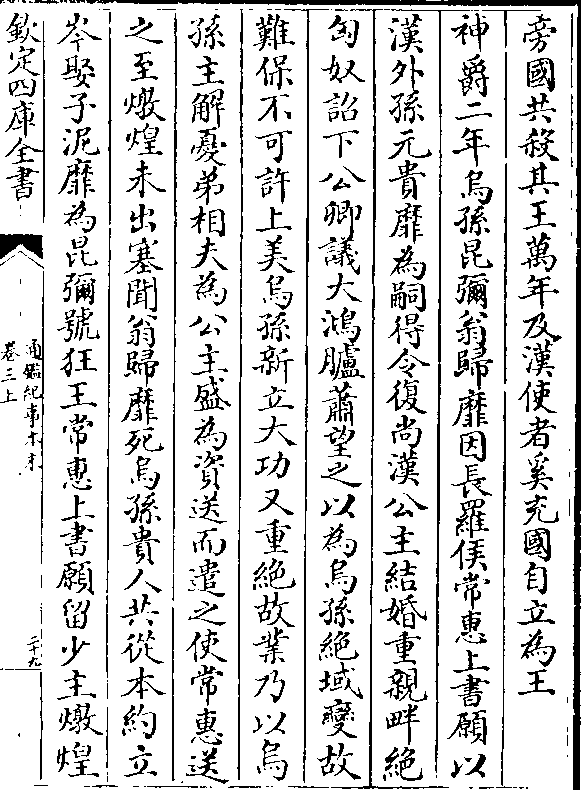 旁國共殺其王萬年及漢使者奚充國自立為王
神爵二年烏孫昆彌翁歸靡因長羅侯常惠上書願以
漢外孫元貴靡為嗣得令復尚漢公主結婚重親畔絕
匈奴詔下公卿議大鴻臚蕭望之以為烏孫絕域變故
難保不可許上美烏孫新立大功又重絕故業乃以烏
孫主解憂弟相夫為公主盛為資送而遣之使常惠送
之至燉煌未出塞聞翁歸靡死烏孫貴人共從本約立
岑娶子泥靡為昆彌號狂王常惠上書願留少主燉煌
欽定四庫全書
通鑑紀事本末
卷三上
二十九